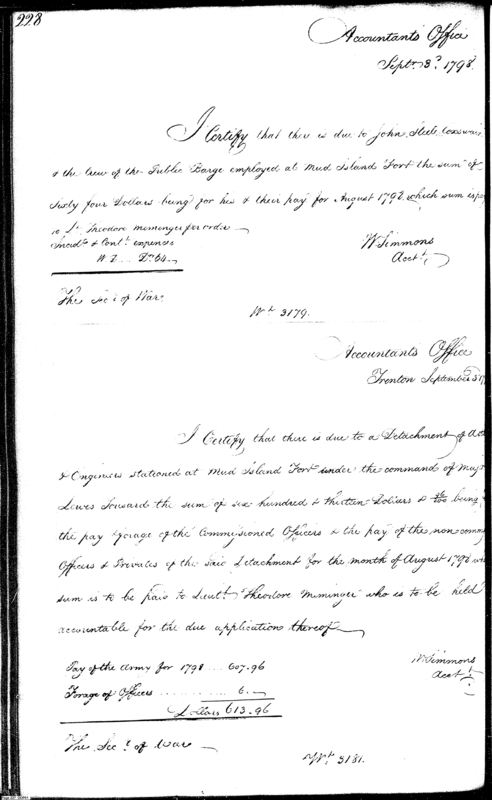 228
Accountants Office
Septr. 3d. 1798.
I Certify that there is due to John Steel Coxswain
& the Crew of the Public Barge employed at Mud Island Fort the sum of
Sixty four Dollars being for his & their pay for August 1798, which sum is pay
to Lt. Theodore Meminger per order
Incidl. & Cont. expenses
W.D.... Drs 64
W Simmons
Acct.
The Secy. of War
Wt. 3179.
Accountants Office
Trenton September 3d 17
I Certify that there is due to a Detachment of Art
& Engineers stationed at Mud Island Fort under the command of Majr
Lewis Tousard the sum of six hundred & thirteen Dollars & 96/100 being
the pay & forage of the Commissioned Officers & the pay of the non comm
Officers & Privates of the said Detachment for the month of August 1798 wh
sum is to be paid to Lieutt. Theodore Meminger who is to be held
accountable for the due application thereof
Pay of the Army for 1798 .... 607.96
Forage of Officers .......... 6.
Dollars 613.96
W Simmons
Acct.
The Secy. of War
Wt. 3181.